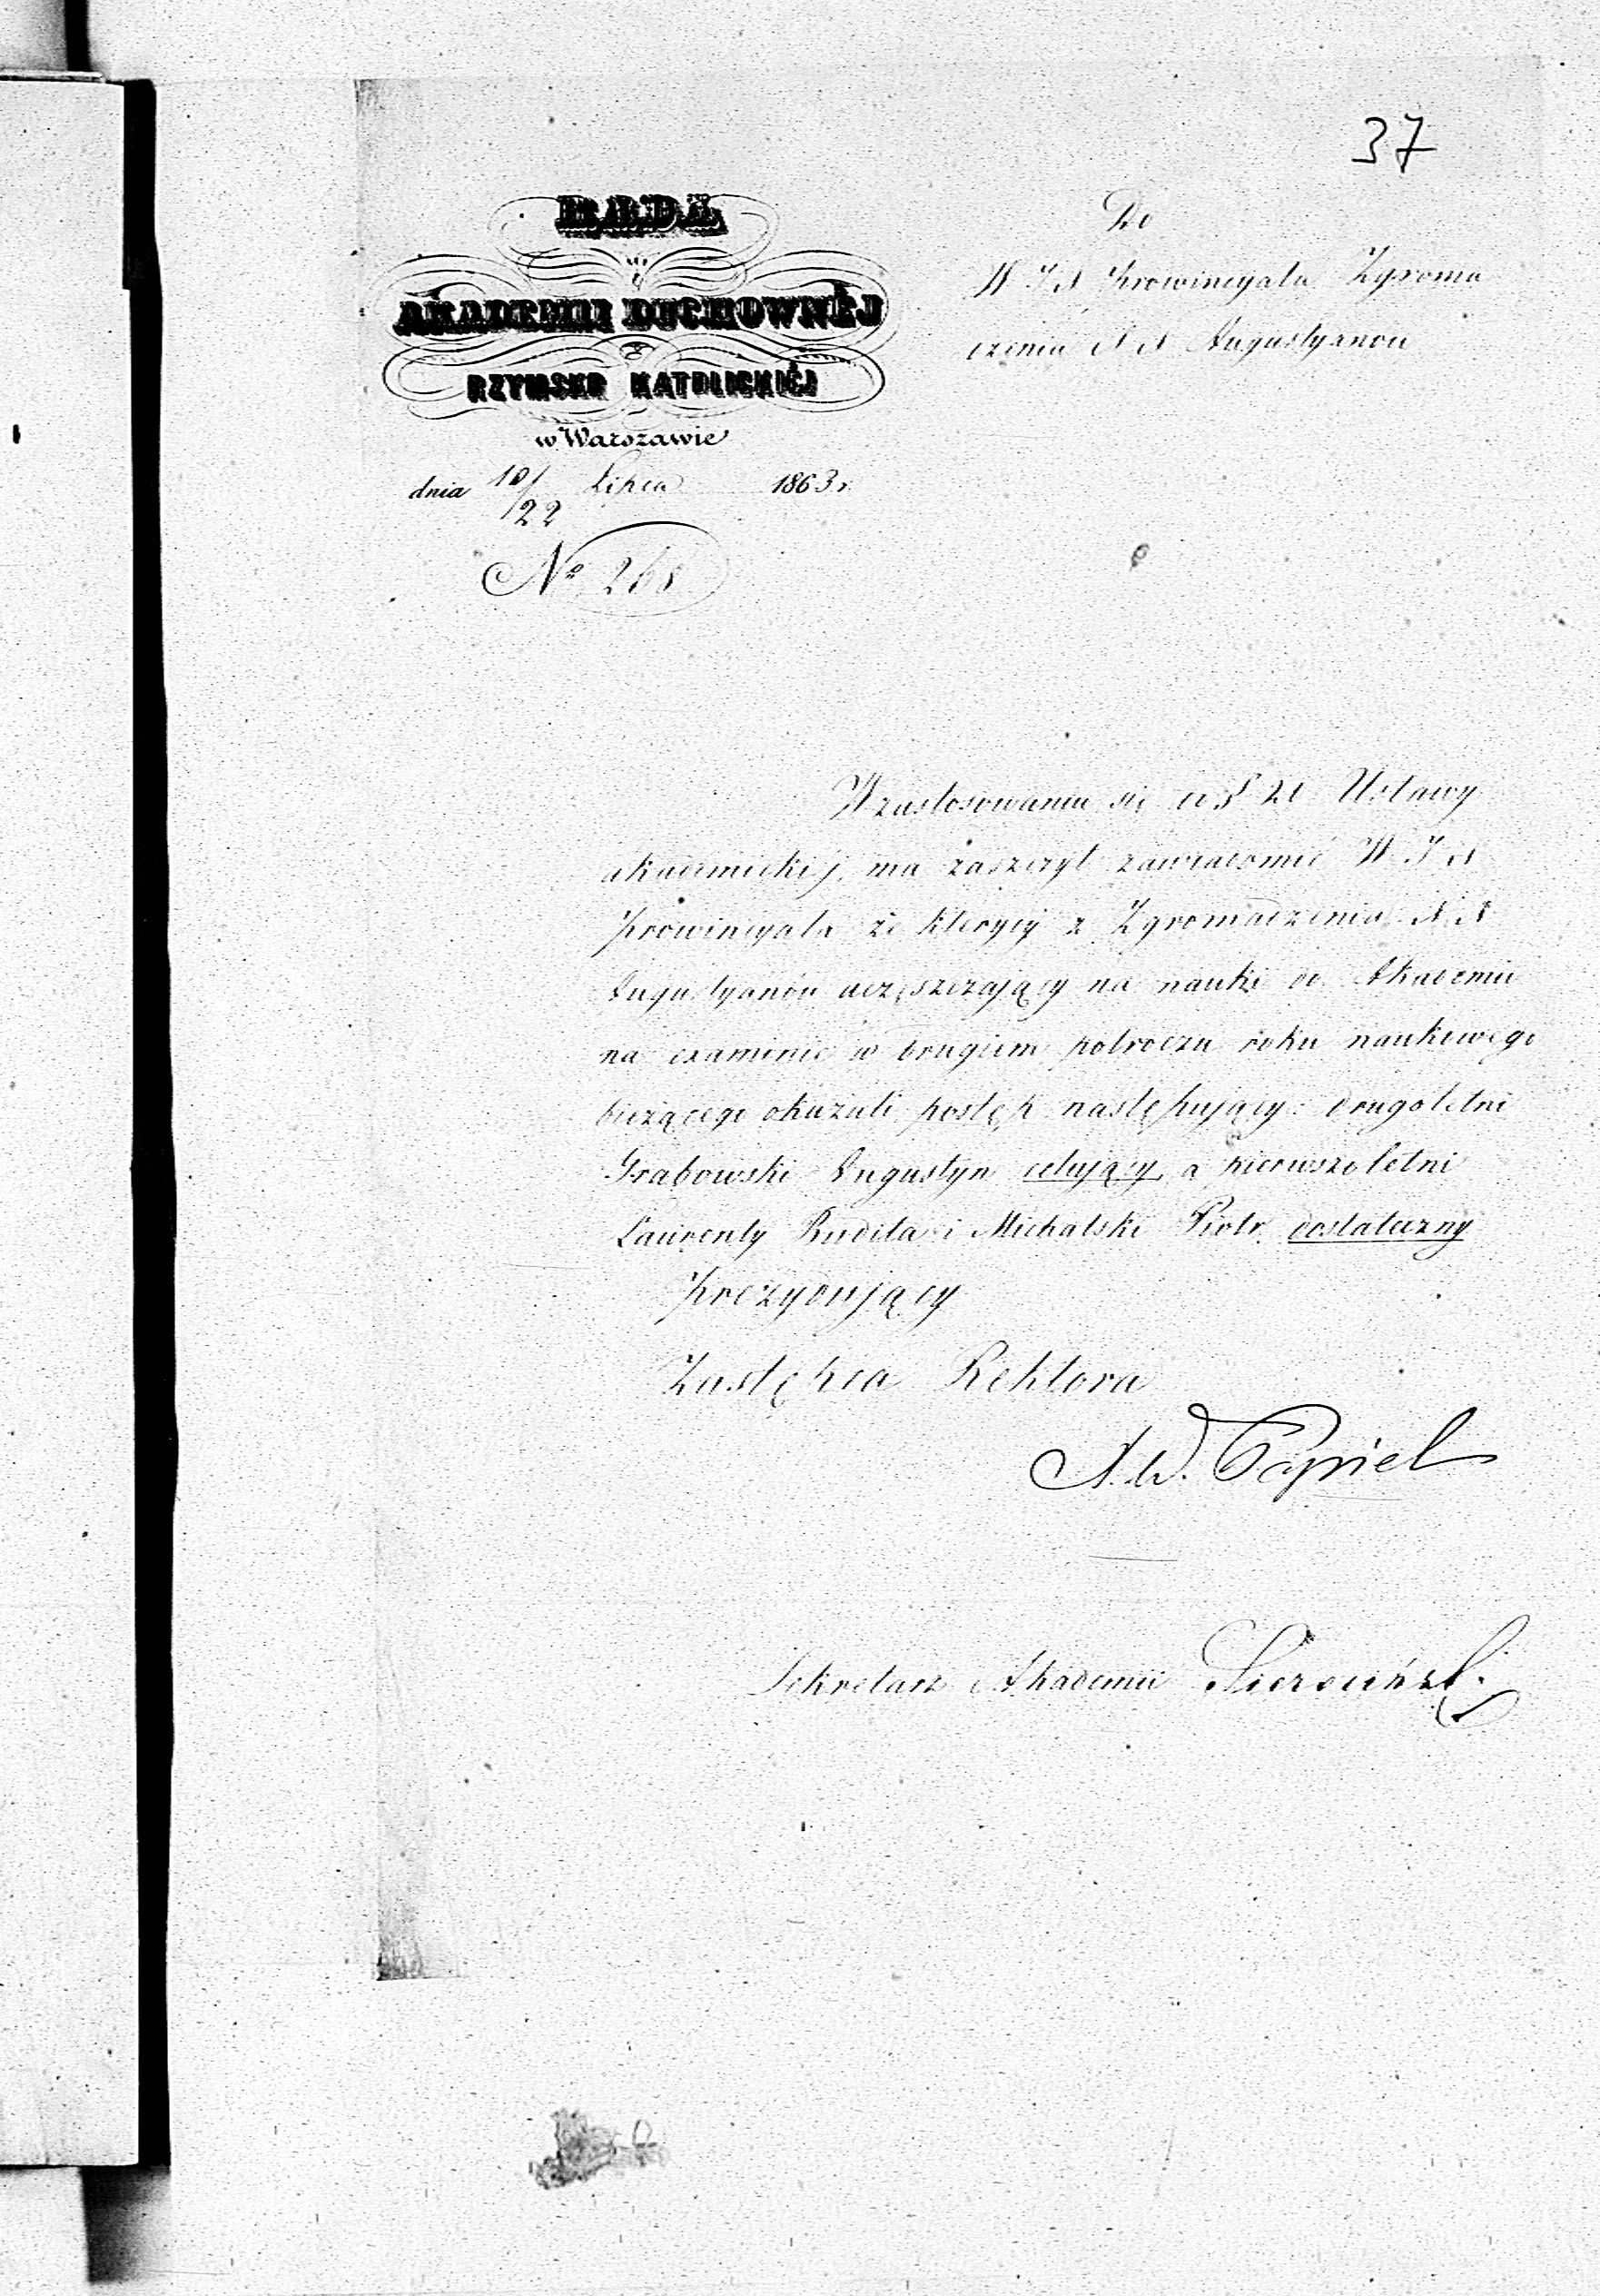 37
RADA
AKADEMII DUCHOWNÉJ
RZYMSKO KATOLICKIÉJ
w Warszawie
dnia 10/22 Lipca 1863 r.
No 268
Do
W J X Prowincyała Zgroma
czenia X X Augustyanów
W zastosowaniu się do § 21 Ustawy
akademickiej, ma zaszczyt zawiadomić W. J X
Prowincyała że klerycy z Zgromadzenia X. X
Augustyanów uczęszczający na nauki do Akademii
na examinie w drugiem półroczu roku naukowego
bieżącego okazali postęp następujący: drugoletni
Grabowski Augustyn celujący, a pierwszoletni
Laurenty i Michalski Piotr dostateczny
Prezydujący
Zastępca Rektora
X. W. Popiel
Sekretarz Akademii Sierociński